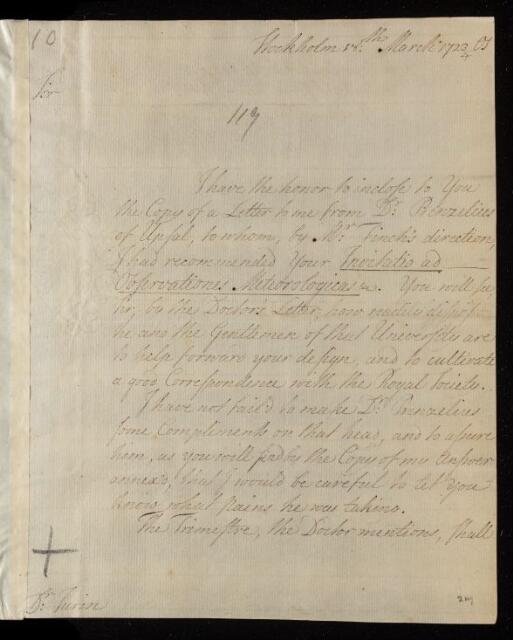 10
Stockholm 18th March 1723/4 OS
Sir
119
I have the honor to inclose to You
the Copy of a Letter to me from Dr. Benzelius
of Upsal, to whom, by Mr. Finch's direction,
I had recommended Your Invitatio ad
Observationes Meteorologicas &c. You will see
Sir, by the Doctor's Letter, how readily dispos'd
he and the Gentlemen of that University are
to help forward your design, and to cultivate
a good Correspondence with the Royal Society.
I have not fail'd to make Dr. Benzelius
some Compliments on that head, and to assure
him, as you will find by the Copy of my Answer
annex'd, that I would be careful to let You
know what pains he was taking.
The Trimestre, the Doctor mentions, shall
Dr. Jurin